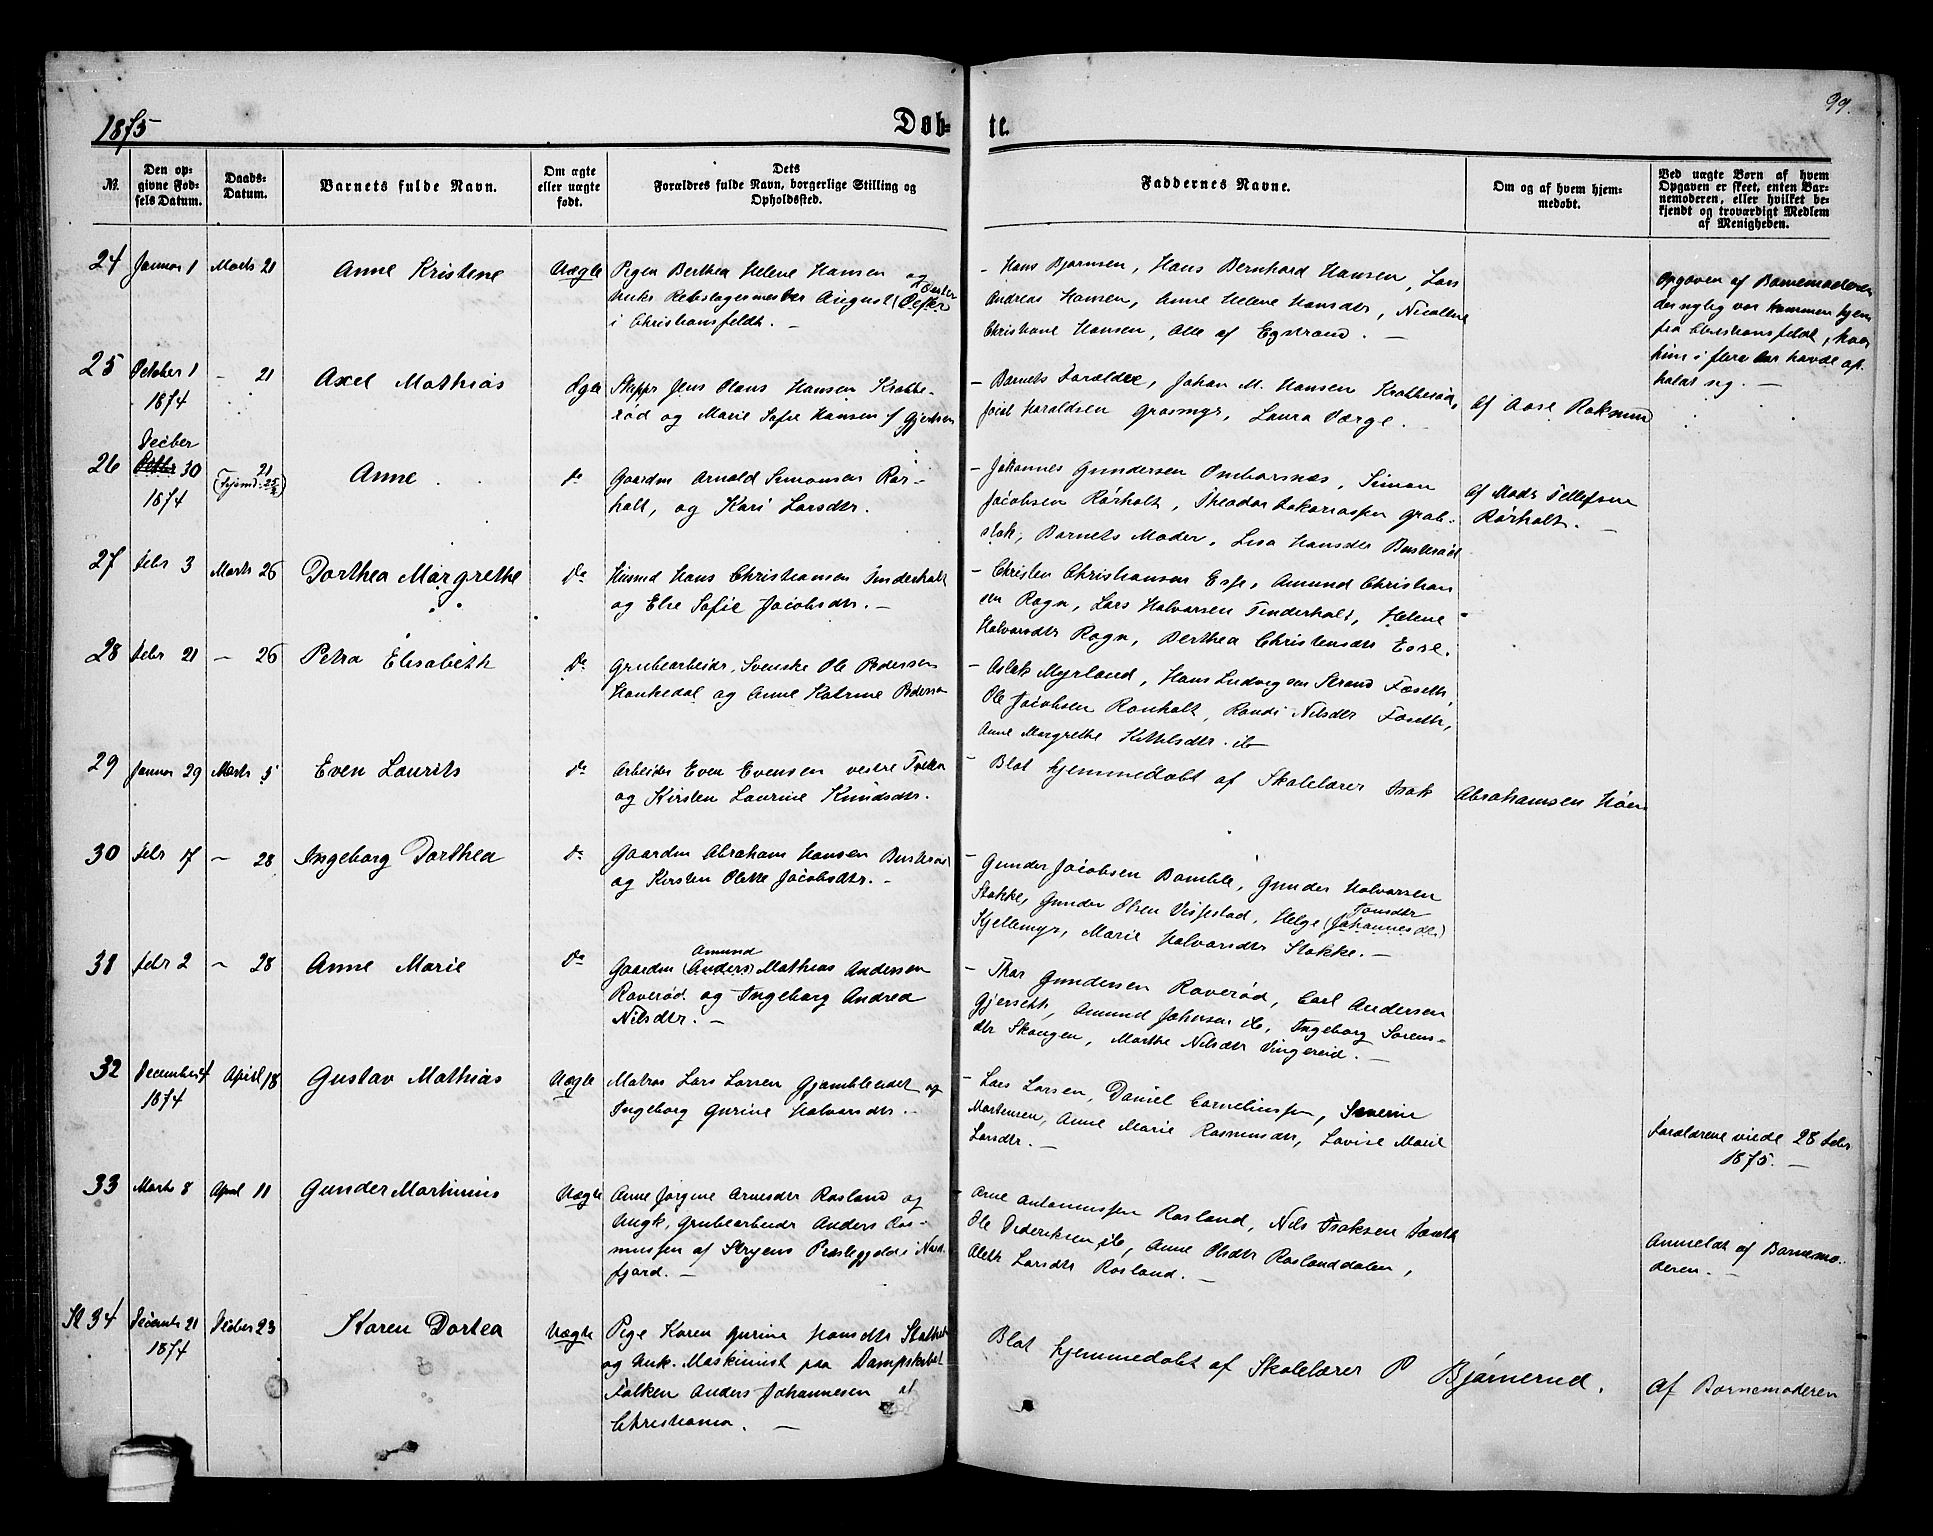 1875
Døb-
te.
99.
No.
Den op-
givne Fød-
sels Datum.
Daabs-
Datum.
Barnets fulde Navn.
Om ægte
eller uægte
født.
Dets
Forældres fulde Navn, borgerlige Stilling og
Opholdssted.
Faddernes Navne.
Om og af hvem hjem-
medøbt.
Ved uægte Børn af hvem
Opgaven er skeet, enten Bar-
nemoderen, eller hvilket be-
kjendt og troværdigt Medlem
af Menigheden.
24 Januar 1 Marts 21 Anne Kristene Uægte
Pigen Berthea Helene Hansen og
Unkr Rebslagermester August
i Christiansfeldt. -
- Hans Bjørnsen, Hans Bernhard Hansen, Lars
Andreas Hansen, Anne Helene Hansdtr, Nicoline
Christiane Hansen, Alle af Egstrand. -
Opgaven af Barnemoderen
der nylig var kommen hjem
fra Christiansfeldt, hvor
hun i flere Aar havde op-
holdt sig. -
25 October 1 - 21 Axel Mathias Ægte
1874
Skippr Jens Hans Hansen Krabbe-
rød og Marie Sofie Hansen f Gjertsen
- Barnets Forældre, Johan M. Hansen Krabberød,
Joist Haraldsen Grasmyr, Laura Værge.
Af Aase Roksund
26 Decber 30 21 Anne do
1874
Gaardm Arnold Simonsen Rør-
holt, og Kari Larsdtr.
- Johannes Gundersen Ombarsnæs, Simon
Jacobsen Rørholt, Theodor Zakariasen Grob-
stok, Barnets Moder, Lisa Hansdtr Buskerød
Af Mads Tellefsen
Rørholt. -
27 Febr 3 Marts 26 Dorthea Margrethe do
Husmd Hans Christiansen Tinderholt
og Else Sofie Jacobsdtr. -
- Christen Christiansen Esse, Amund Christian
sen Rogn, Lars Halvorsen Tinderholt, Helene
Halvorsdtr Rogn, Berthea Christensdtr Esse.
28 Febr 21 - 26 Petra Elisabeth do
Grubearbeidr. Svenske Ole Pedersen
Hankedal og Anne Katrine Pedersen
- Aslak Myrland, Hans Ludvigsen Strand Foseth,
Ole Jacobsen Ronholt, Randi Nilsdtr Foseth,
Anne Margrethe Kittelsdtr. ib
29 Januar 29 Marts 5 Even Laurits do
Arbeider Even Evensen vestre Tveten
og Kirsten Laurine Knudsdtr.
- Blot hjemmedøbt af Skolelærer Isak Abrahamsen Høen
30 Febr 17 - 28 Ingeborg Dorthea do
Gaardm Abraham Hansen Buskerød
og Kirsten Olette Jacobsdtr. -
- Gunder Jacobsen Bamble, Gunder Halvorsen
Stokke, Gunder Olsen Vissestad, Helge (Johannesdtr) Tonsdtr
Kjellemyr, Marie Halvorsdtr Stokke. -
31 Febr 2 - 28 Anne Marie do
Amund
Gaardm (Anders) Mathias Andersen
Roverød og Ingeborg Andrea
Nilsdtr. -
- Thor Gundersen Roverød, Carl Andersen
Gjerseth, Amund Johnsen ib, Ingeborg Sørens-
dtr Skougen, Marthe Nilsdtr Vingereid. -
32 December 4 April 18 Gustav Mathias Uægte
1874
Matros Lars Larsen Gjømblendet og
Ingeborg Gurine Halvorsdtr. -
- Lars Larsen, Daniel Corneliussen, Severin
Mortensen, Anne Marie Rasmusdtr, Lovise Marie
Larsdtr. -
Forældrene viede 28 Febr
1875. -
33 Marts 8 April 11 Gunder Martinius Uægte
Anne Jørgine Arnesdtr Rosland og
Ungk. Grubearbeidr Anders Ras-
mussen af Stryens Præstegjeld i Nord-
fjord. -
- Arne Antoniussen Rosland, Nils Isaksen Foseth
Ole Dideriksen ib, Anne Olsdtr Roslanddalen,
Aleth Larsdtr Rosland. -
Anmeldt af Barnemo-
deren. -
34 Decembr 21 Decber 23 Karen Dortea Uægte
1874
Pige Karen Gurine Hansdtr Stathel
og Unk. Maskinist paa Dampskibet
Falken Anders Johannesen af
Christiania. -
Blot hjemmedøbt af Skolelærer P Bjørnerud.
Af Barnemoderen